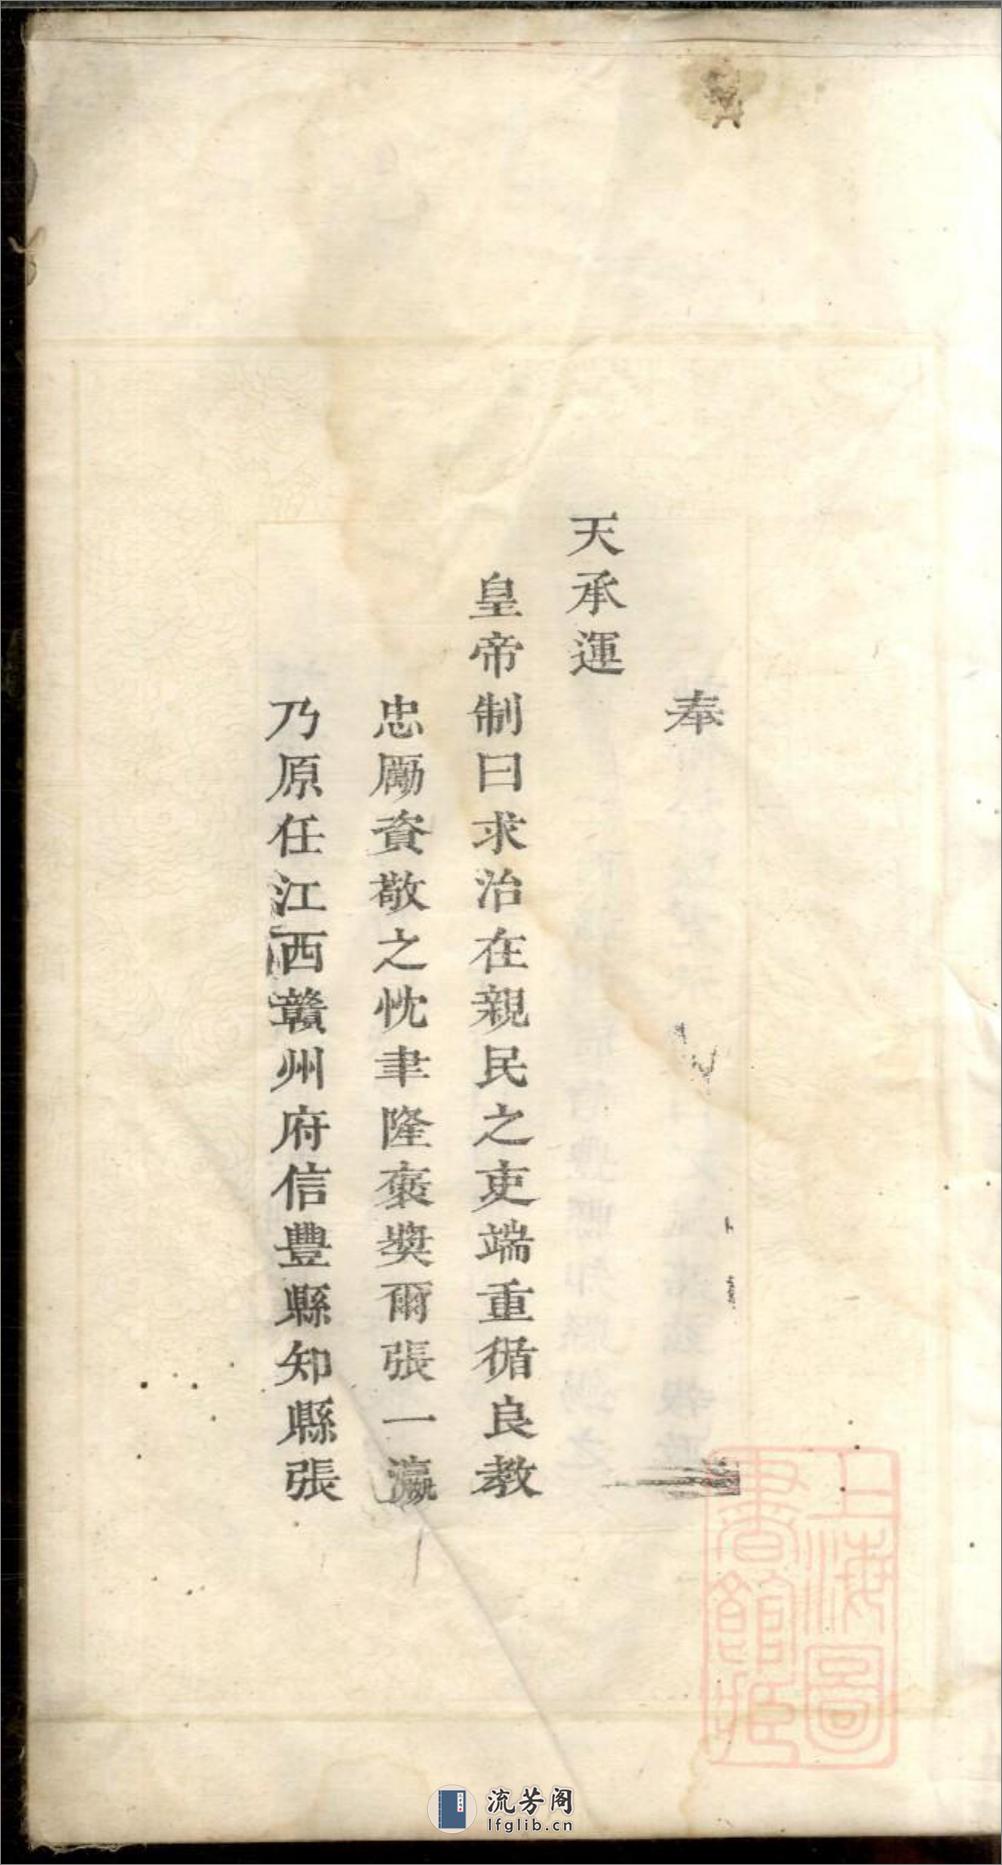 奉
天承運
皇帝制曰求治在親民之吏端重循良教
忠勵資敬之忱聿隆襃奬爾張一瀛
乃原任江西贛州府信豐縣知縣張
上海圖
書館藏
流芳阁
lfglib.cn